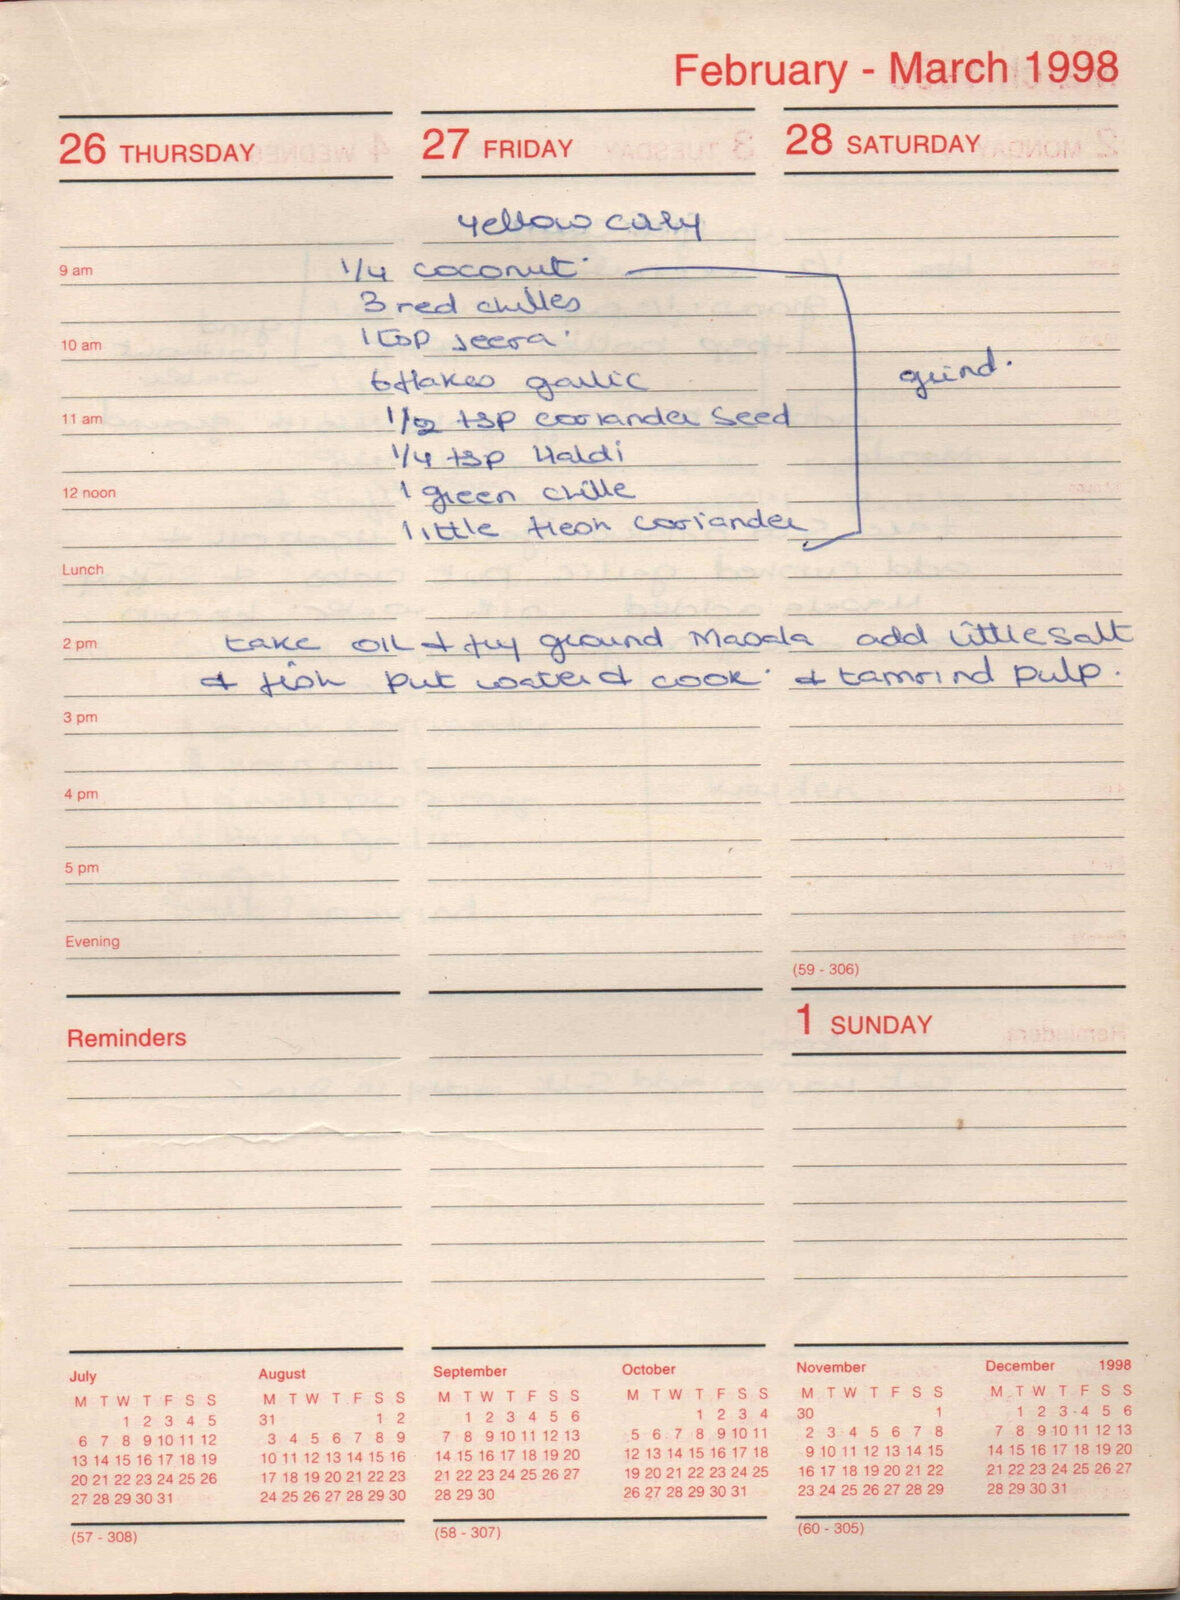 February - March 1998
26 THURSDAY
27 FRIDAY
28 SATURDAY
yellow cury
9 am
1/4 coconut
3 red chilles
10 am
1 tsp jeera
6 flakes garlic
grind.
11 am
1/2 tsp coriander seed
1/4 tsp Haldi
12 noon
1 green chille
little fresh coriander
Lunch
2 pm
take oil & fry ground Masala add little salt
& fish put water & cook & tamrind pulp.
3 pm
4 pm
5 pm
Evening
(59 - 306)
Reminders
1 SUNDAY
July
M T W T F S S
1 2 3 4 5
6 7 8 9 10 11 12
13 14 15 16 17 18 19
20 21 22 23 24 25 26
27 28 29 30 31
(57 - 308)
August
M T W T F S S
31 1 2
3 4 5 6 7 8 9
10 11 12 13 14 15 16
17 18 19 20 21 22 23
24 25 26 27 28 29 30
September
M T W T F S S
1 2 3 4 5 6
7 8 9 10 11 12 13
14 15 16 17 18 19 20
21 22 23 24 25 26 27
28 29 30
(58 - 307)
October
M T W T F S S
1 2 3 4
5 6 7 8 9 10 11
12 13 14 15 16 17 18
19 20 21 22 23 24 25
26 27 28 29 30 31
November
M T W T F S S
30 1
2 3 4 5 6 7 8
9 10 11 12 13 14 15
16 17 18 19 20 21 22
23 24 25 26 27 28 29
(60 - 305)
December 1998
M T W T F S S
1 2 3 4 5 6
7 8 9 10 11 12 13
14 15 16 17 18 19 20
21 22 23 24 25 26 27
28 29 30 31